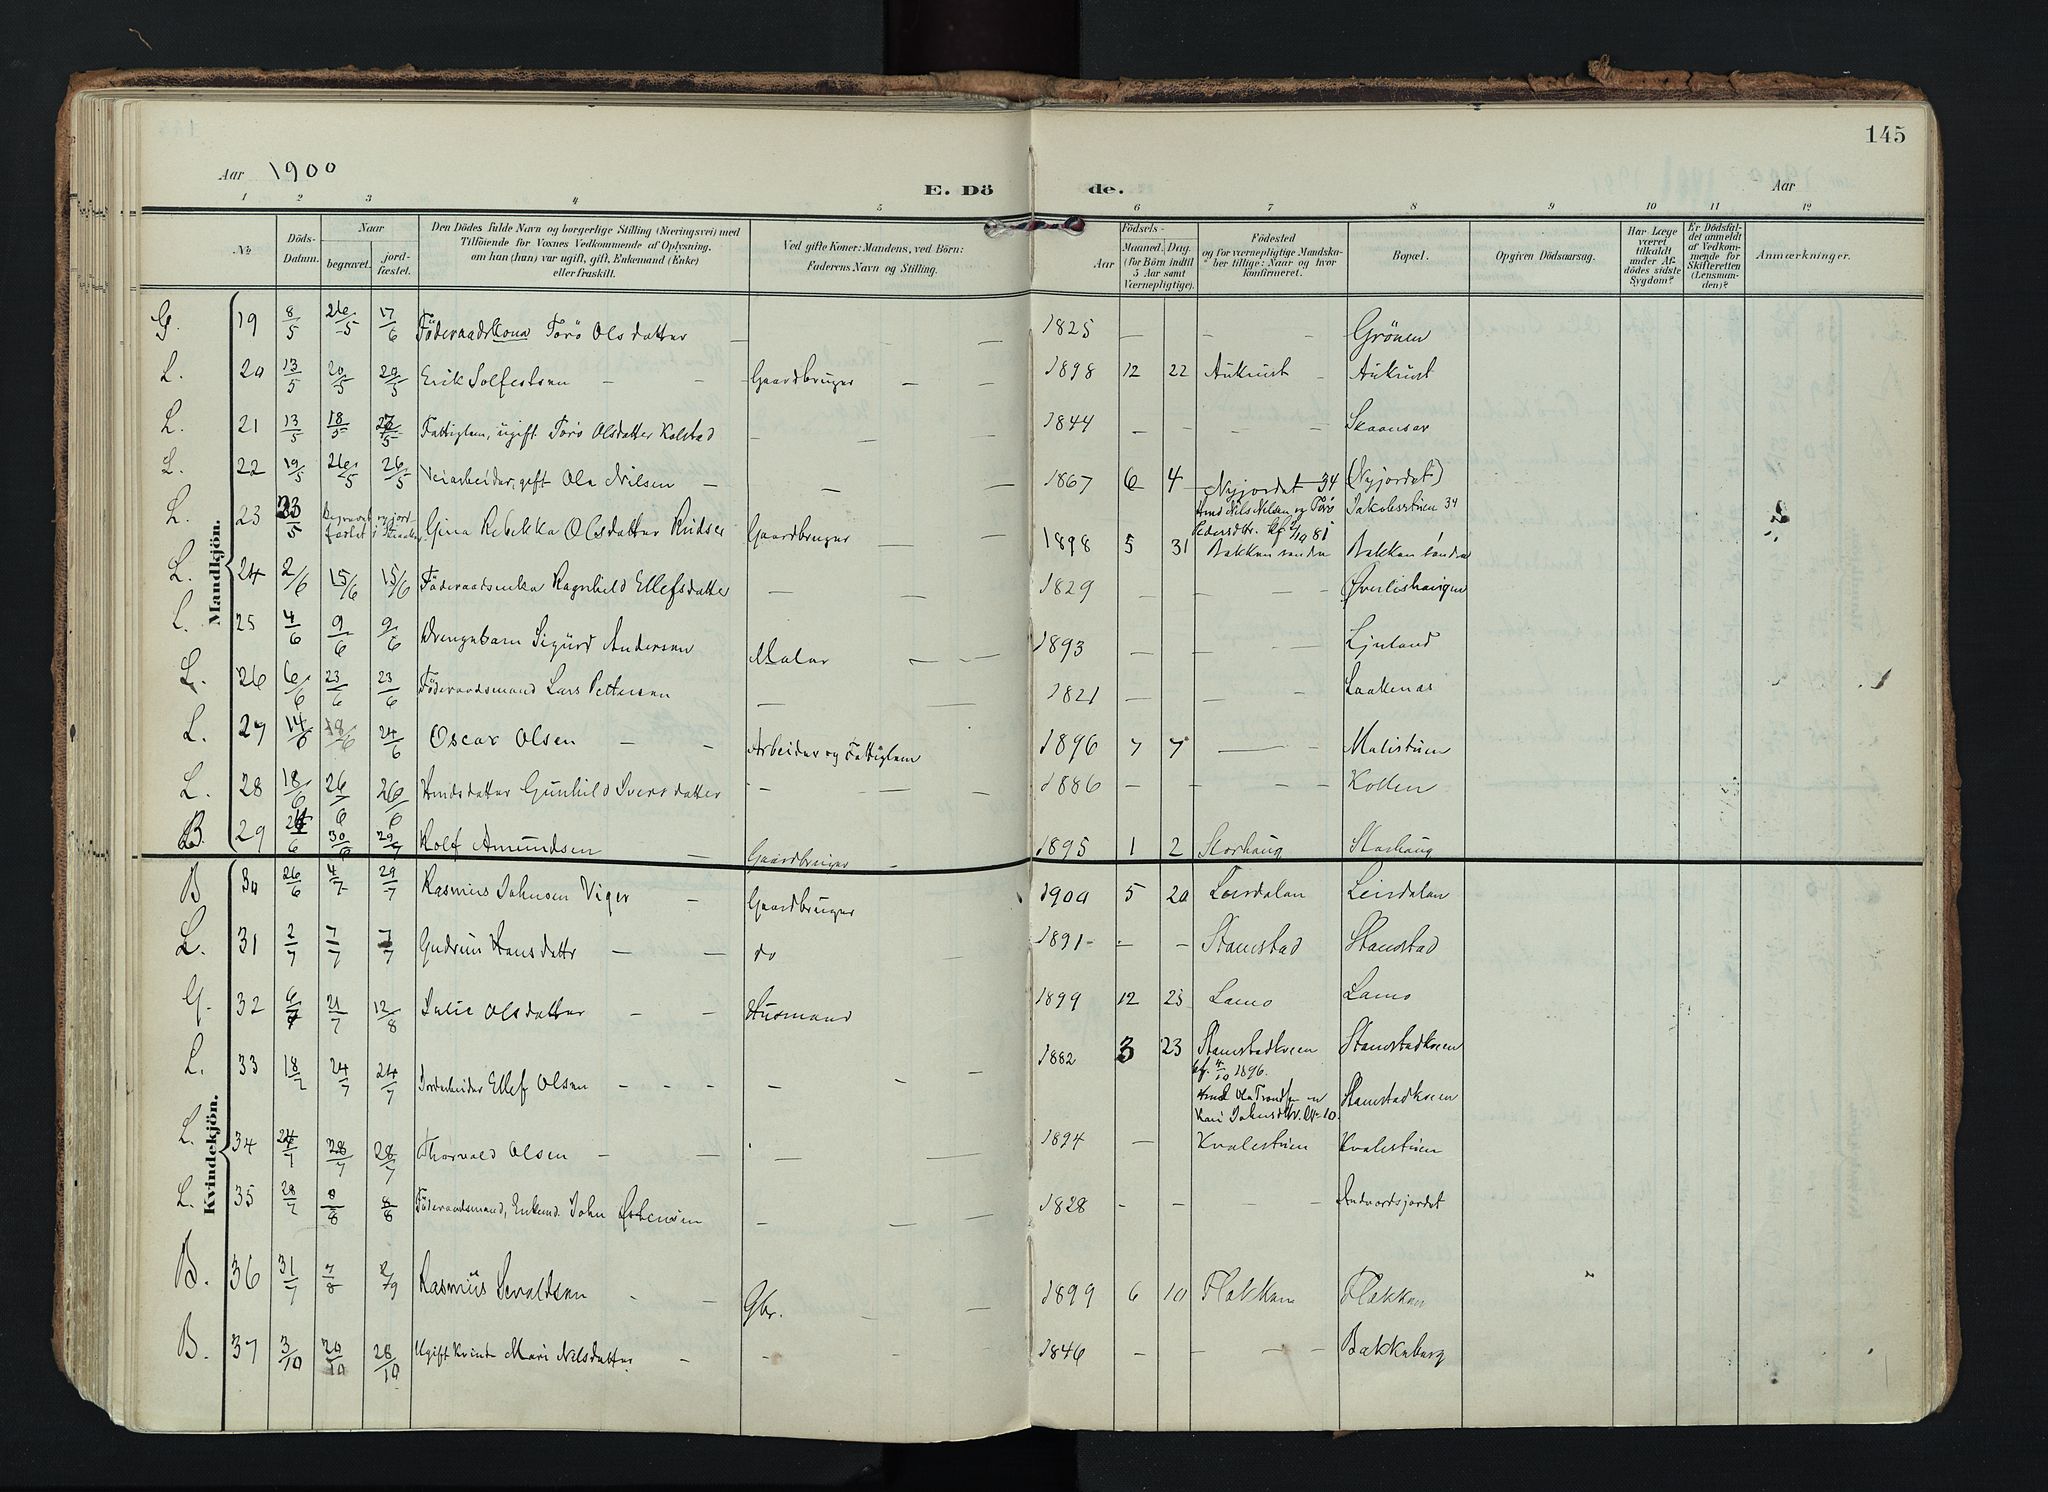 145
Aar 1900
E. Dö de.
Aar
1 2 3 4 5 6 7 8 9 10 11 12
No.
Döds-Datum.
Naar
begravet.
jord-fæstet.
Den Dödes fulde Navn og borgerlige Stilling (Næringsvei) med
Tilföiende for Voxnes Vedkommende af Oplysning,
om han (hun) var ugift, gift, Enkemand (Enke)
eller fraskilt.
Ved gifte Koner: Mandens, ved Börn:
Faderens Navn og Stilling.
Födsels-
Aar
Maaned. Dag.
(for Börn indtil
5 Aar samt
Værnepligtige).
Födested
og for værnepligtige Mandska-
ber tillige: Naar og hvor
konfirmeret.
Bopæl.
Opgiven Dödsaarsag.
Har Læge
været
tilkaldt
under Af-
dödes sidste
Sygdom?
Er Dödsfal-
det anmeldt
af Vedkom-
mende for
Skifteretten
(Lensman-
den)?
Anmærkninger.
Mandkjön.
Kvindekjön.
G. 19 8/5 26/5 17/6 Föderaadskona Torö Olsdatter — — — 1825 — — — Grönen
L. 20 13/5 20/5 20/5 Erik Solfestsen — — Gaardbruger — — 1898 12 22 Aukrust — Aukrust
L. 21 13/5 18/5 Fattiglem, ugift Torö Olsdatter Kolstad — — — 1844 — — — —
L. 22 19/5 26/5 26/5 Veiarbeider, gift Ola Nilsen — — — 1867 6 4 Nyjordet 34 (Nyjordet)
Nils Nilsen og Torö Jakobsstuen 34
L. 23 23/5 Begravet og jord-
fæstet i Gina Rebekka Olsdatter Gaardbruger — — 1898 5 31 Bakken söndre Bakken söndre
L. 24 2/6 15/6 15/6 Föderaadsenke Ragnhild Ellefsdatter — — — 1829 — — — Överlishaugen
L. 25 4/6 9/6 9/6 Drengebarn Sigurd Andersen Maler — — 1893 — — — Ljuland
L. 26 6/6 23/6 23/6 Föderaadsmand Lars Pettersen — — 1821 — — — Laakenas
L. 27 14/6 18/6 24/6 Oscar Olsen — — Arbeider og Fattiglem 1896 7 7 — — Malistuen
L. 28 18/6 26/6 26/6 Gunhild Iversdatter — — — 1886 — — — Kollen
B. 29 /6 30/6 29/7 Rolf Amundsen — Gaardbruger — 1895 1 2 Storhaug Storhaug
B 30 26/6 4/7 29/7 Rasmus Johnsen Viger — Gaardbruger 1900 5 20 Leirdalen Leirdalen
L. 31 2/7 7/7 7/7 Gudrun Hansdattr — — do — 1891 — — Stamstad Stamstad
G. 32 6/7 21/7 12/8 Julie Olsdatter — — Husmand 1899 12 23 Lamo Lamo
L. 33 18/7 24/7 24/7 Jordarbeider Ellef Olsen — — — — — — 1882 3 23 Stamstadkveen Stamstadkveen
kf. 4/10 1896.
Ola Trondsen og Stamstadkveen
Kari Johnsdtr.
L. 34 24/7 28/7 28/7 Thorvald Olsen — — — — 1894 — Kvalestuen Kvalestuen
L. 35 28/7 8/8 8/8 Föderaadsmand, Enkemd. John Esbensen — — — 1828 — — —
B. 36 31/7 7/8 2/9 Rasmus — — Gbr. — 1899 6 10 Flakken Flakken
B. 37 3/10 20/10 28/10 Ugift Kvinde Mari Nilsdatter — — — — 1846 — — — Bakkeberg